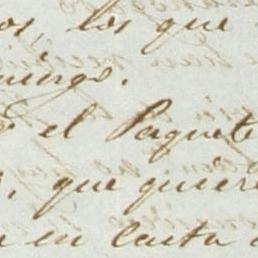 os, los que
mingo.
el Paquete
, que quiere
a en carta